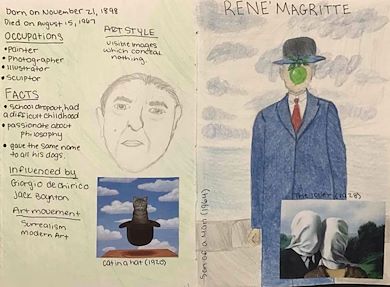 Born on November 21, 1898
Died on August 15, 1967
Occupations
• Painter
• Photographer
• Illustrator
• Sculptor
FACTS
• school dropout, had
a difficult childhood
• passionate about
philosophy
• gave the same name
to all his dogs.
Influenced by
Giorgio de Chirico
Jack Boynton
Art movement
Surrealism
Modern Art
ART STYLE
visible images
which conceal
nothing.
cat in a hat (1920)
RENE' MAGRITTE
Son of a Man (1964)
The lover (1928)